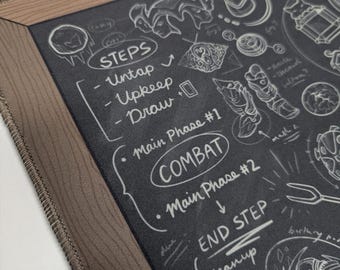 STEPS
- Untap
- Upkeep
- Draw
• Main Phase #1
COMBAT
• Main Phase #2
END STEP
Cleanup